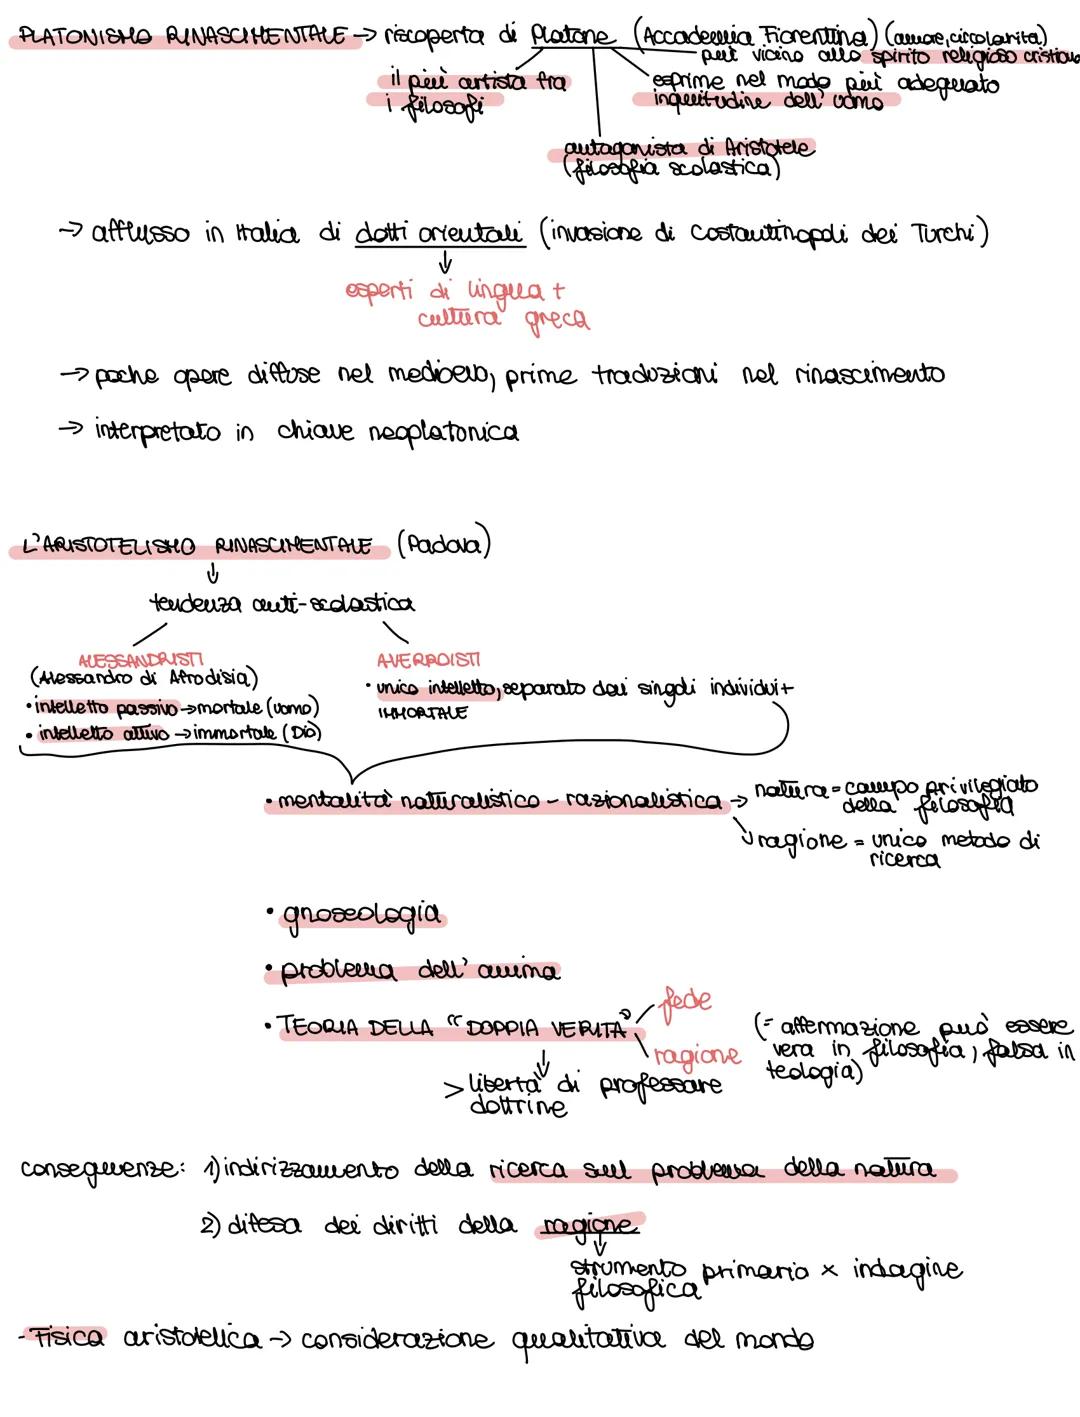 PLATONISMO RINASCIMENTALE → riscoperta di Platone (Accademia Fiorentina) (amore, circolarità)
più vicino allo spirito religioso cristiano
il più artista fra
i filosofi
esprime nel modo più adeguato
inquietudine dell'uomo
antagonista di Aristotele
(filosofia scolastica)
→ afflusso in Italia di dotti orientali (invasione di Costantinopoli dei Turchi)
↓
esperti di lingua +
cultura greca
→ poche opere diffuse nel medioevo, prime traduzioni nel rinascimento
→ interpretato in chiave neoplatonica
L'ARISTOTELISMO RINASCIMENTALE (Padova)
↓
tendenza anti-scolastica
ALESSANDRISTI
(Alessandro di Afrodisia)
• intelletto passivo → mortale (uomo)
• intelletto attivo → immortale (Dio)
AVERROISTI
• unico intelletto, separato dai singoli individui +
IMMORTALE
• mentalità naturalistico - razionalistica → natura = campo privilegiato
della filosofia
↘ ragione = unico metodo di
ricerca
• gnoseologia
• problema dell'anima
• TEORIA DELLA "DOPPIA VERITÀ"
fede
ragione
(= affermazione può essere
vera in filosofia, falsa in
teologia)
↓
> libertà di professare
dottrine
conseguenze: 1) indirizzamento della ricerca sul problema della natura
2) difesa dei diritti della ragione
↓
strumento primario x indagine
filosofica
- Fisica aristotelica → considerazione qualitativa del mondo